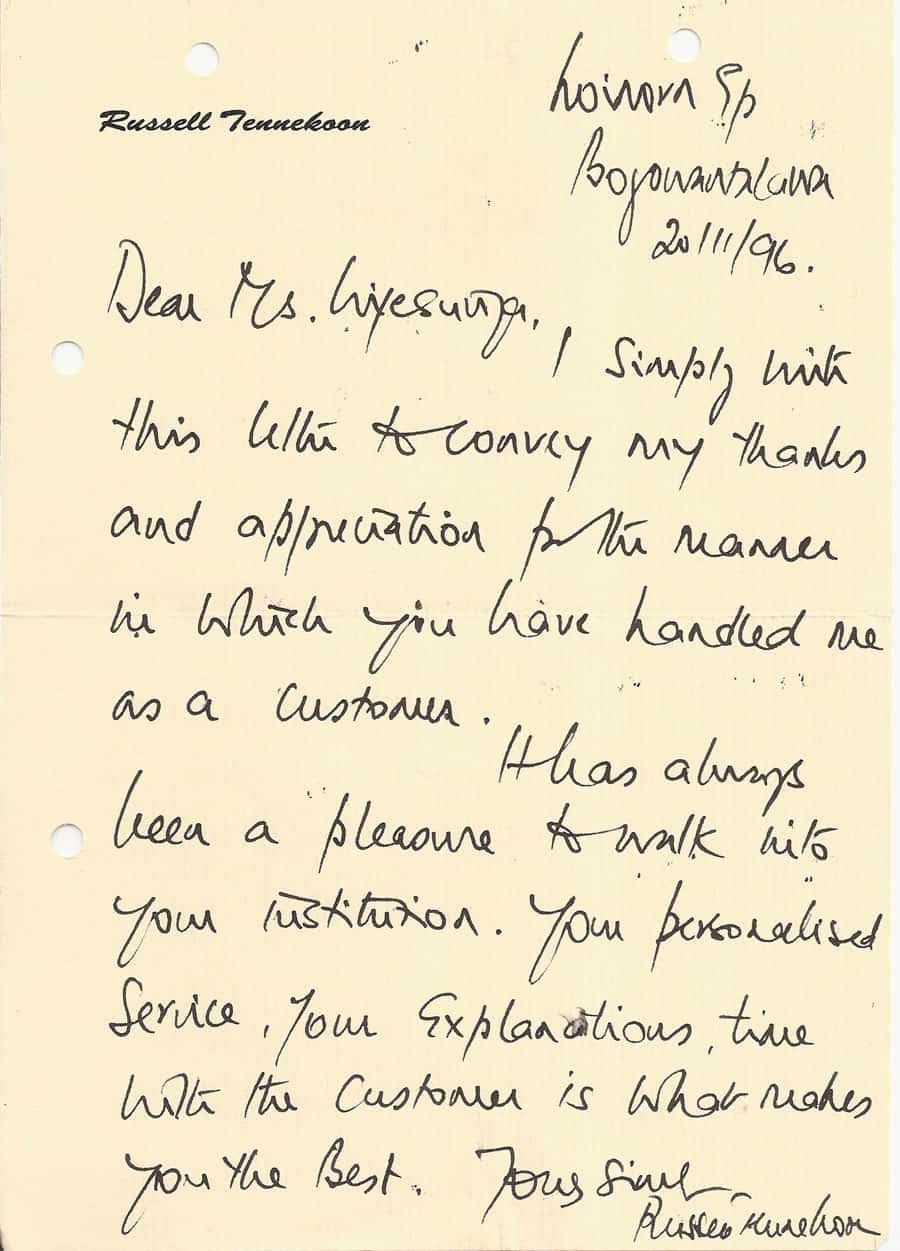 Russell Tennekoon
Loinorn Gp
Bogowantalawa
20/11/96.
Dear Ms.
I Simply write
this letter to convey my thanks
and appreciation for the manner
in which you have handled me
as a customer.
It has always
been a pleasure to walk into
your institution. Your personalised
Service, Your Explanations, time
with the Customer is what makes
you the Best. Yours Sincerely
Russell Tennekoon